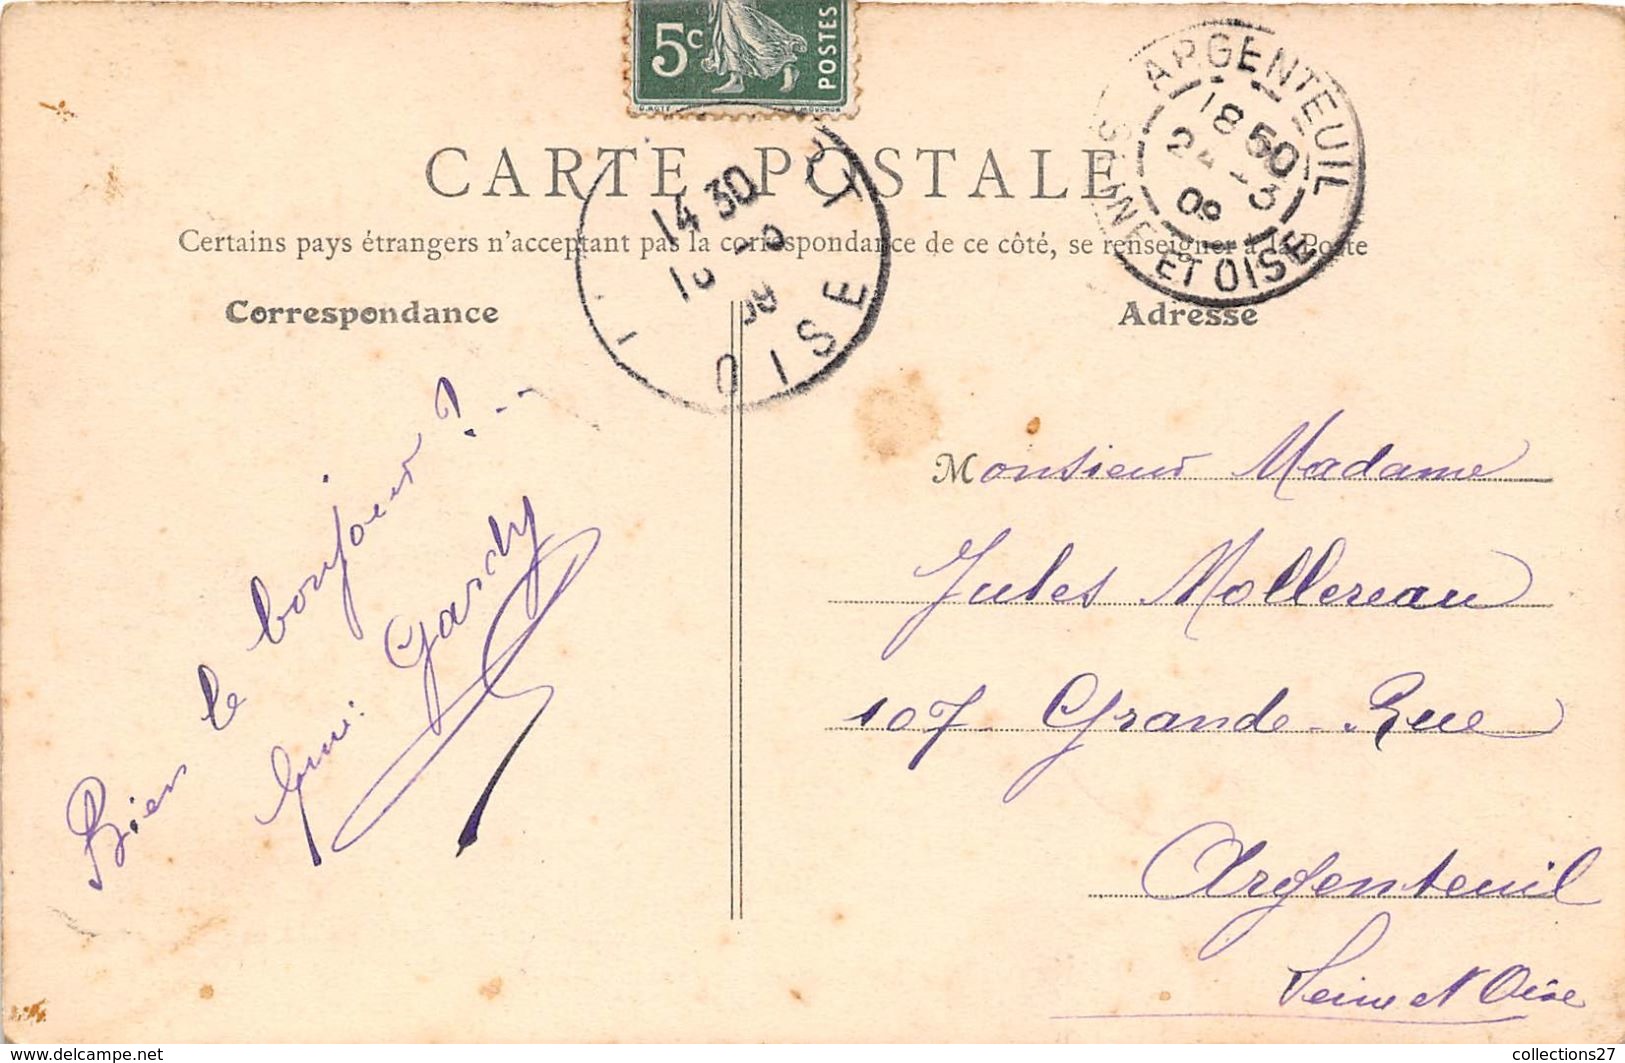 5c
POSTES
CARTE POSTALE
Certains pays étrangers n'acceptent pas la correspondance de ce côté, se renseigner à la Poste
Correspondance
Adresse
ARGENTEUIL
18 50
24 -3
09
S. INE ET OISE
14 30
OISE
Bien le bonjour
Gardy
Monsieur Madame
Jules Mollereau
107 Grande-Rue
Argenteuil
Seine et Oise
www.delcampe.net
collections27